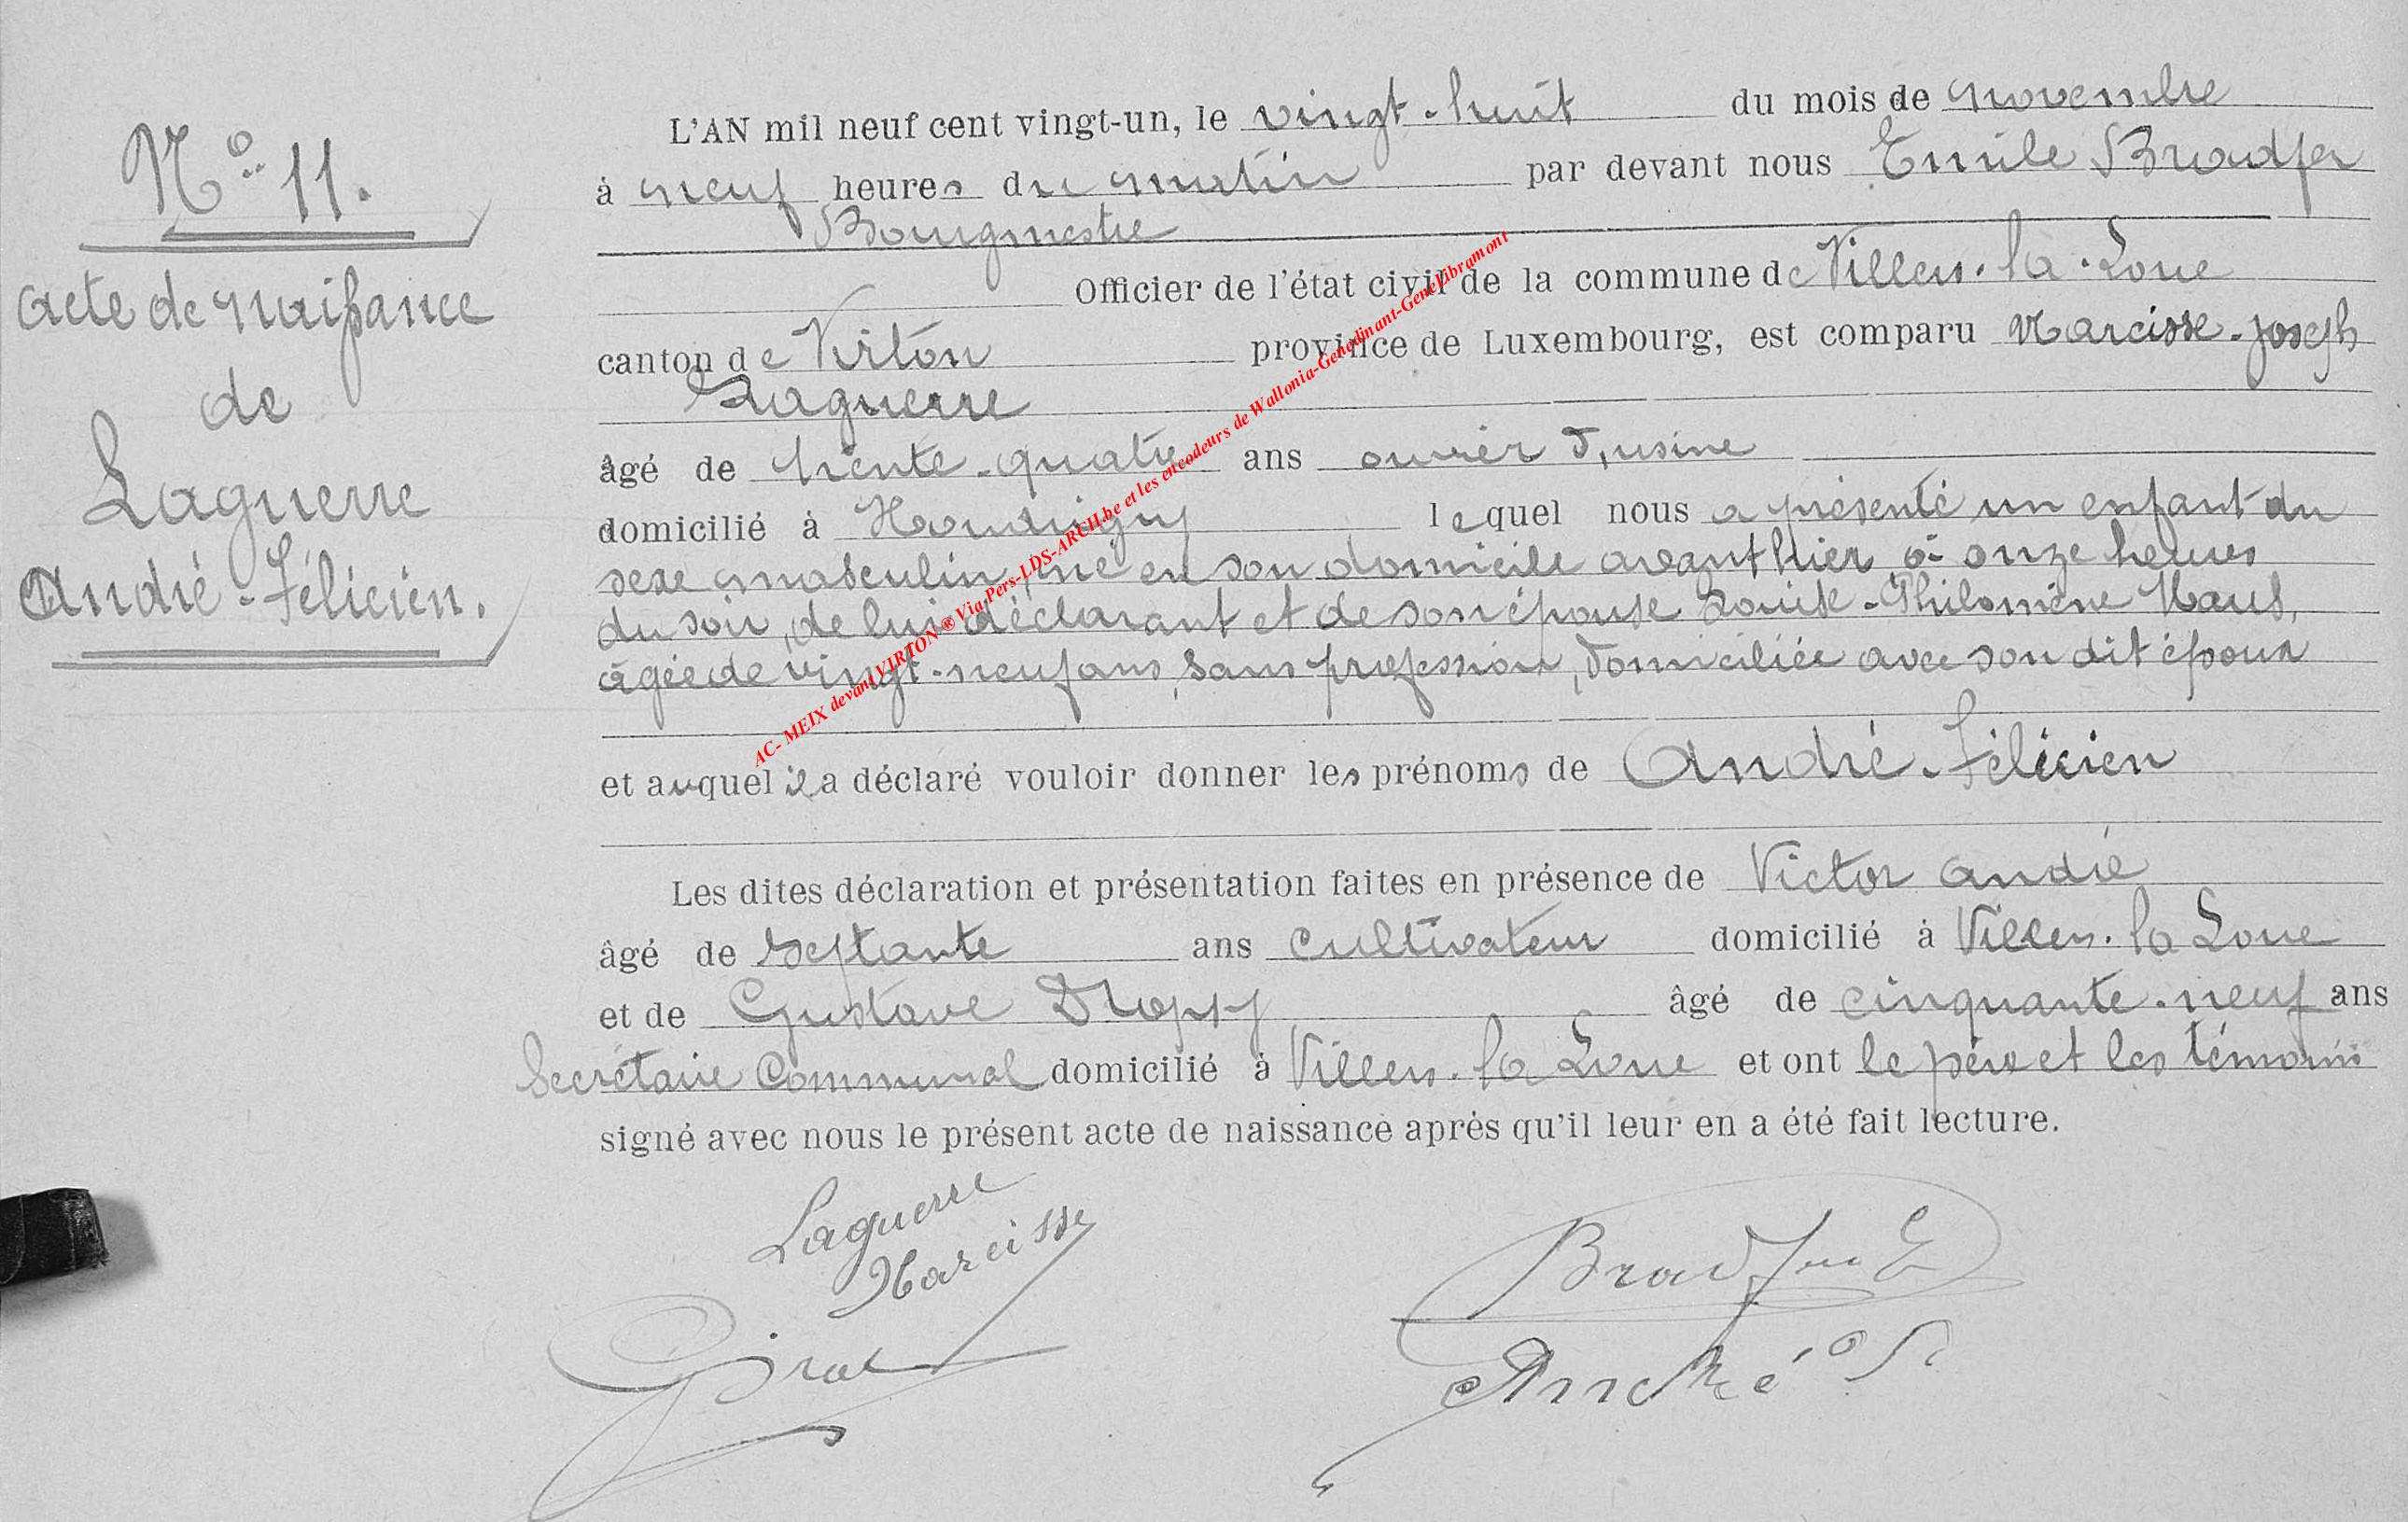 N° 11.
acte de naissance
de
Laguerre
André-Félicien.
L'AN mil neuf cent vingt-un, le vingt-huit du mois de novembre
à neuf heures du matin par devant nous Emile Bradfer
Bourgmestre
Officier de l'état civil de la commune de Villers-la-Loue
canton de Virton province de Luxembourg, est comparu Narcisse-Joseph
Laguerre
âgé de trente-quatre ans ouvrier d'usine
domicilié à Houdrigny lequel nous a présenté un enfant du
sexe masculin, né en son domicile avant hier, à onze heures
du soir, de lui déclarant et de son épouse Louise-Philomène
âgée de vingt-neuf ans, sans profession, domiciliée avec son dit époux
et auquel il a déclaré vouloir donner les prénoms de André-Félicien
Les dites déclaration et présentation faites en présence de Victor André
âgé de septante ans cultivateur domicilié à Villers-la Loue
et de Gustave Dropsy âgé de cinquante-neuf ans
Secrétaire Communal domicilié à Villers-la Loue et ont le père et les témoins
signé avec nous le présent acte de naissance après qu'il leur en a été fait lecture.
Laguerre
Narcisse
Bradfer E
André
AC- MEIX devant VIRTON ® Via Pers-LDS-ARCH.be et les encodeurs de Wallonia-Genedinant-GeneLibramont